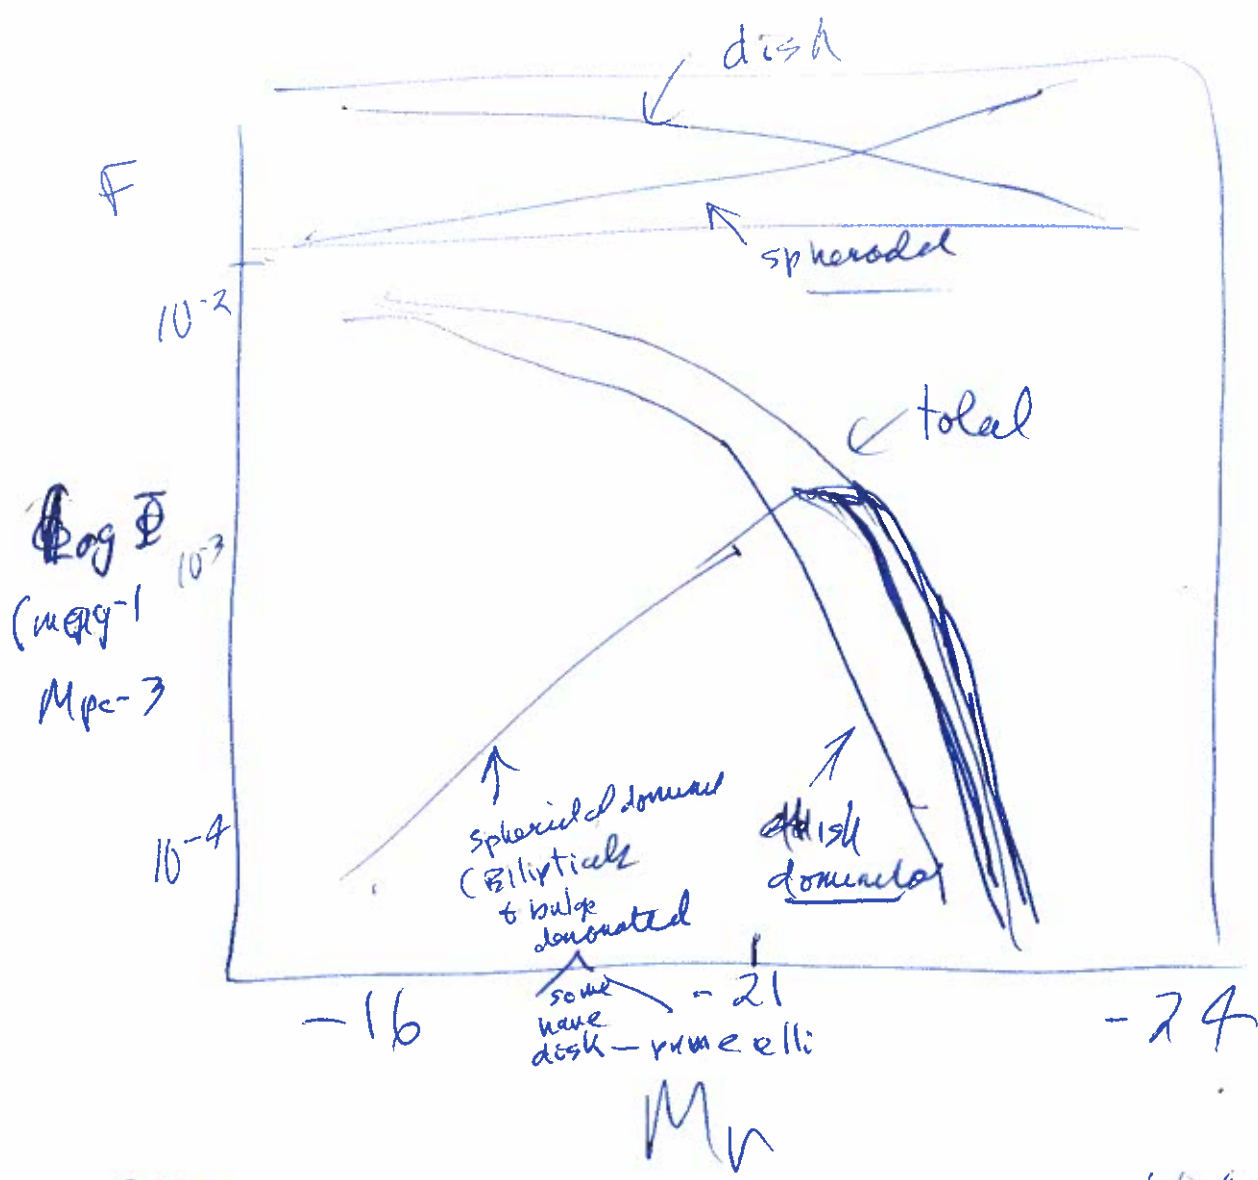 disk
F
spherodal
10-2
total
log Φ
10-3
(mag-1
Mpc-3
spheroidal dominat
(Ellipticals
+ bulge
domonated
disk
dominated
10-4
-16
some
have
disk -
elli
-21
-24
Mr